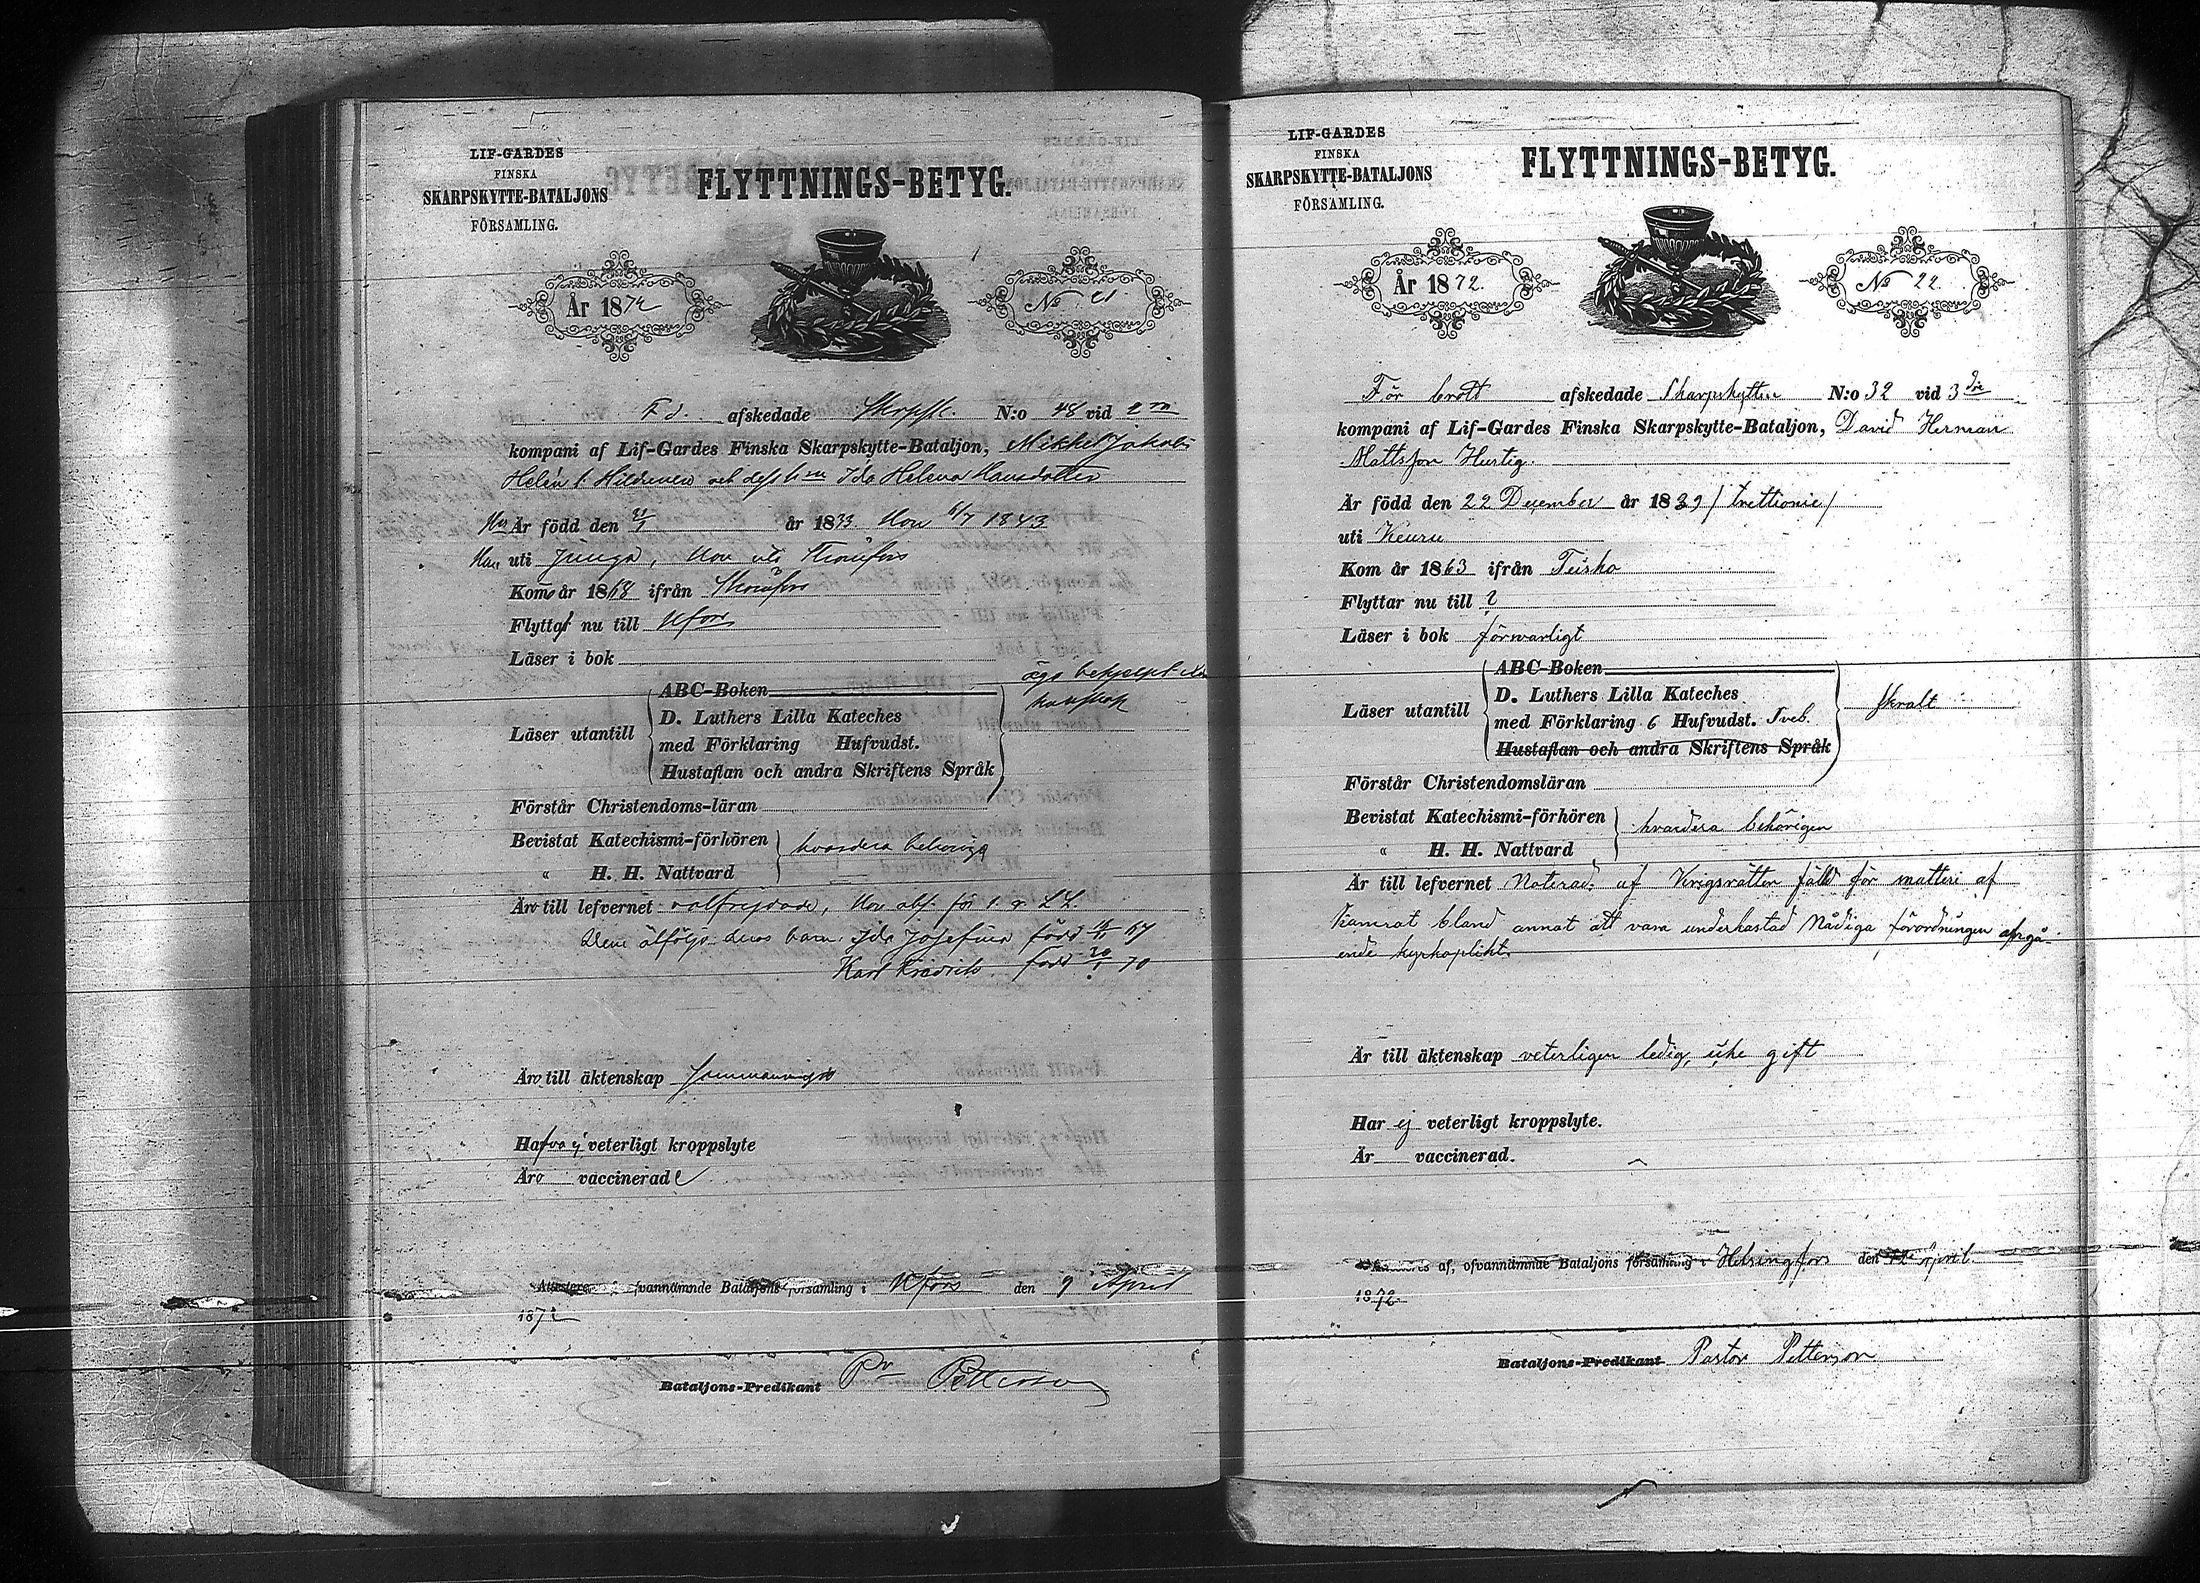 LIF-GARDES
FINSKA
SKARPSKYTTE-BATALJONS
FÖRSAMLING.
FLYTTNINGS-BETYG.
År 1872
No 21
F d. afskedade Skrpsk. N:o 48 vid 2
kompani af Lif-Gardes Finska Skarpskytte-Bataljon, Mikkel Jakobs
Helén f. och Ida Helena Hansdotter
Är född den 21/1 år 1833 Hon 6/7 1843
Han uti Hon uti Strömfors
Kom år 1868 ifrån Strömfors
Flytta nu till Hfors
Läser i bok
Läser utantill
ABC-Boken
D. Luthers Lilla Kateches
med Förklaring Hufvudst.
Hustaflan och andra Skriftens Språk
äga
kunskap
Förstår Christendoms-läran
Bevistat Katechismi-förhören
" H. H. Nattvard
hvardera behörig
Äro till lefvernet välfrejdade, Hon abs. för
Dem åtfölja deras barn: Ida Josefina född 67
Karl Fredrik född 20/1 70
Äro till äktenskap
Hafva ej veterligt kroppslyte
Äro vaccinerade
Attesteras ofvannämnde Bataljons församling i Hfors den 9 April
1872
Bataljons-Predikant Pr Petterson
LIF-GARDES
FINSKA
SKARPSKYTTE-BATALJONS
FÖRSAMLING.
FLYTTNINGS-BETYG.
År 1872.
No 22
För brott afskedade Skarpskytten N:o 32 vid 3dje
kompani af Lif-Gardes Finska Skarpskytte-Bataljon, David Herman
Mattsson Hurtig.
Är född den 22 December år 1839 / trettionie /
uti Keuru
Kom år 1863 ifrån Teisko
Flyttar nu till ?
Läser i bok försvarligt
Läser utantill
ABC-Boken
D. Luthers Lilla Kateches
med Förklaring 6 Hufvudst. Sveb.
Hustaflan och andra Skriftens Språk
skralt
Förstår Christendomsläran
Bevistat Katechismi-förhören
" H. H. Nattvard
hvardera behörigen
Är till lefvernet Noterad; af Krigsrätten fälld för snatteri af
Kamrat bland annat att vara underkastad Nådiga förordningen angå-
ende kyrkoplikt.
Är till äktenskap veterligen ledig, icke gift
Har ej veterligt kroppslyte.
Är vaccinerad.
af, ofvannämnde Bataljons församling i Helsingfors den 12 April.
1872.
Bataljons-Predikant Pastor Petterson